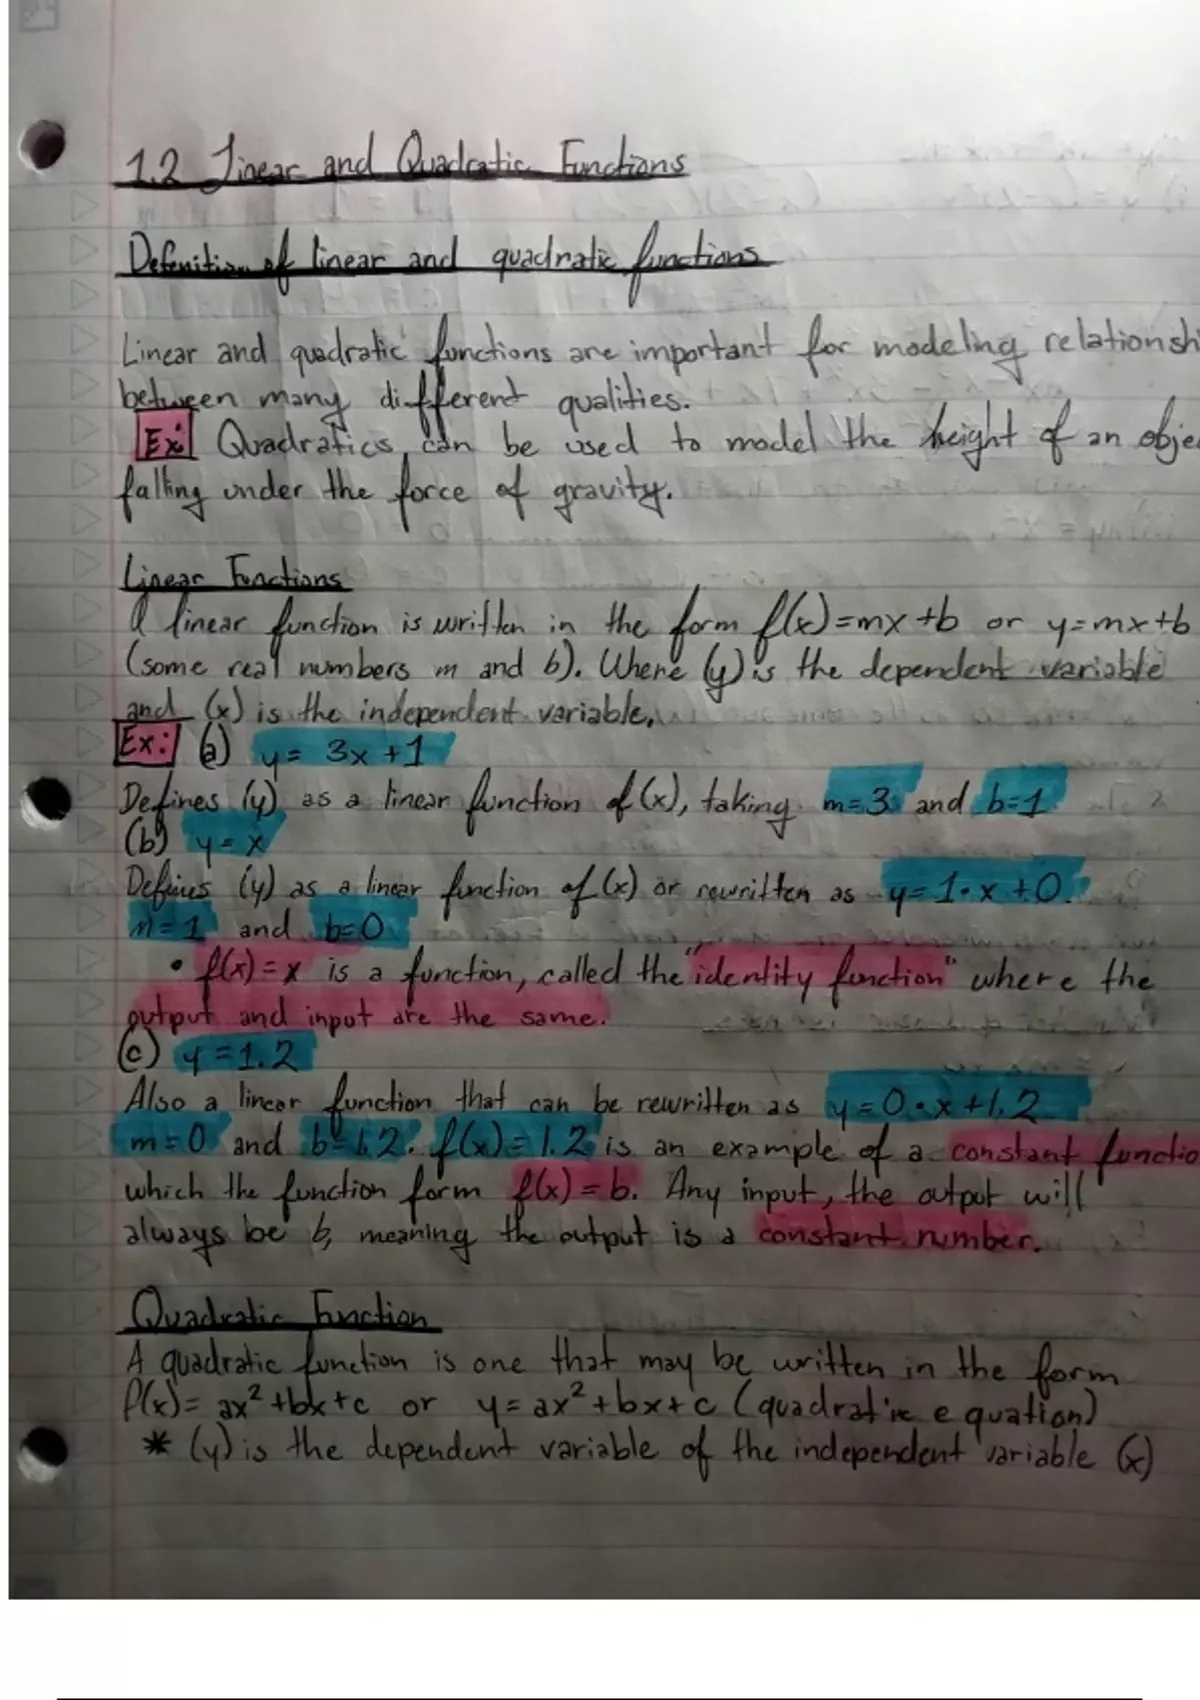 1.2 Linear and Quadratic Functions
Defenition of linear and quadratic functions
Linear and quadratic functions are important for modeling relationsh
between many different qualities.
Ex: Quadratics can be used to model the height of an objec
falling under the force of gravity.
Linear Functions
A linear function is written in the form f(x)=mx+b or y=mx+b
(some real numbers m and b). Where (y) is the dependent variable
and (x) is the independent variable.
Ex: (a) y= 3x+1
Defines (y) as a linear function of (x), taking m=3 and b=1
(b) y=x
Defines (y) as a linear function of (x) or rewritten as y=1·x+0.
m=1 and b=0
• f(x)=x is a function, called the "identity function" where the
output and input are the same.
(c) y=1.2
Also a linear function that can be rewritten as y=0·x+1.2
m=0 and b=1.2. f(x)=1.2 is an example of a constant functio
which the function form f(x)=b. Any input, the output will
always be b, meaning the output is a constant number.
Quadratic Function
A quadratic function is one that may be written in the form
f(x)= ax²+bx+c or y=ax²+bx+c (quadratic equation)
* (y) is the dependent variable of the independent variable (x)